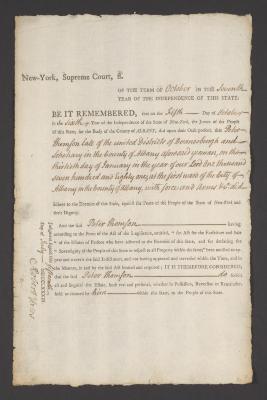 New-York, Supreme Court, ss.
OF THE TERM OF October IN THE Seventh
YEAR OF THE INDEPENDENCE OF THIS STATE.
BE IT REMEMBERED, that on the Fifth Day of October
in the Sixth Year of the Independence of the State of New-York, the Jurors of the People
of this State, for the Body of the County of ALBANY, did upon their Oath present, that Peter
Thomson late of the united Districts of Duanesburgh and
Schohary in the County of Albany aforesaid yeoman, on the
thirtieth day of January in the year of our Lord one thousand
seven hundred and Eighty one, at the first ward of the City of
Albany in the County of Albany, with force and Arms &c did
adhere to the Enemies of this State, against the Peace of the People of the State of New-York and
their Dignity.
And the said Peter Thomson having
according to the Form of the Act of the Legislature, entitled, "An Act for the Forfeiture and Sale
"of the Estates of Persons who have adhered to the Enemies of this State, and for declaring the
"Sovereignty of the People of this State in respect to all Property within the same," been notified to appear
and traverse the said Indictment, and not having appeared and traversed within the Time, and in
the Manner, as by the said Act limited and required; IT IS THEREFORE CONSIDERED,
that the said Peter Thomson do
all and singular the Estate, both real and personal, whether in Possession, Reversion or Remainder,
held or claimed by him within this State, to the People of this State.